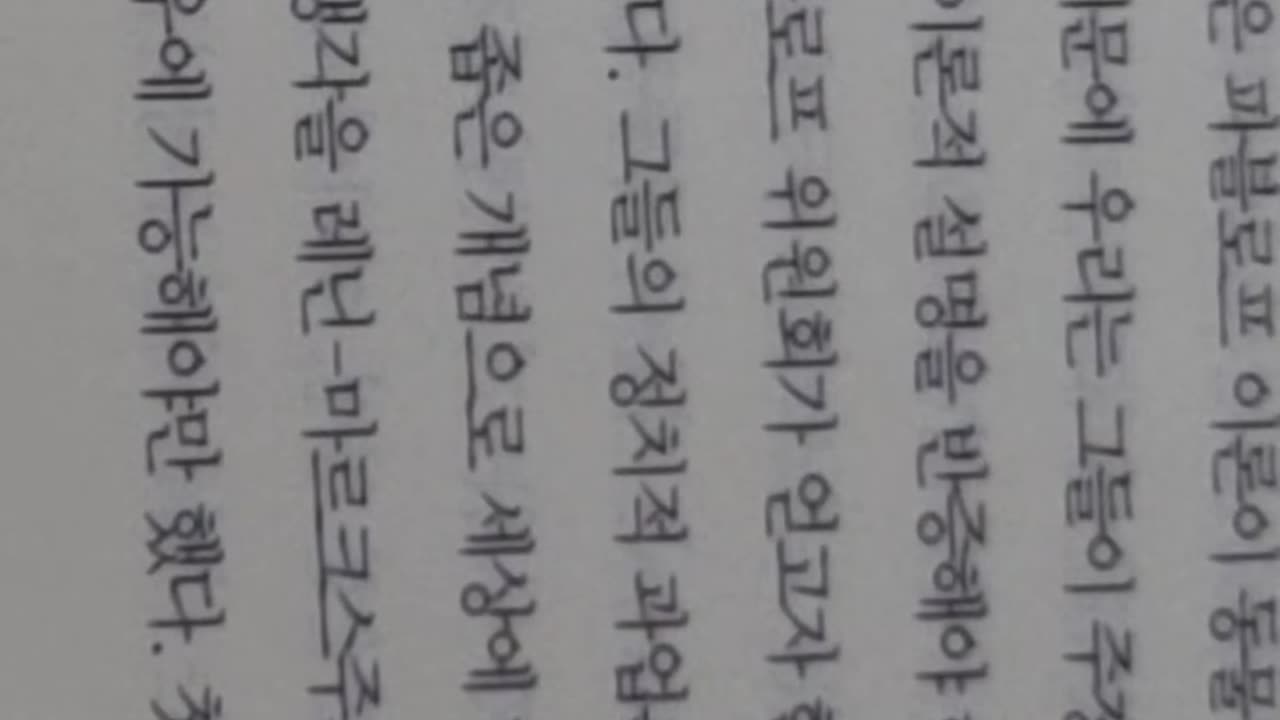 은 파블로프 이론이 동물
문에 우리는 그들이
이론적 설명을 반증해야
로프 위원회가 얻고자
다. 그들의 정치적 과업
좁은 개념으로 세상에
생각을 레닌-마르크스주
우에 가능해야만 했다.